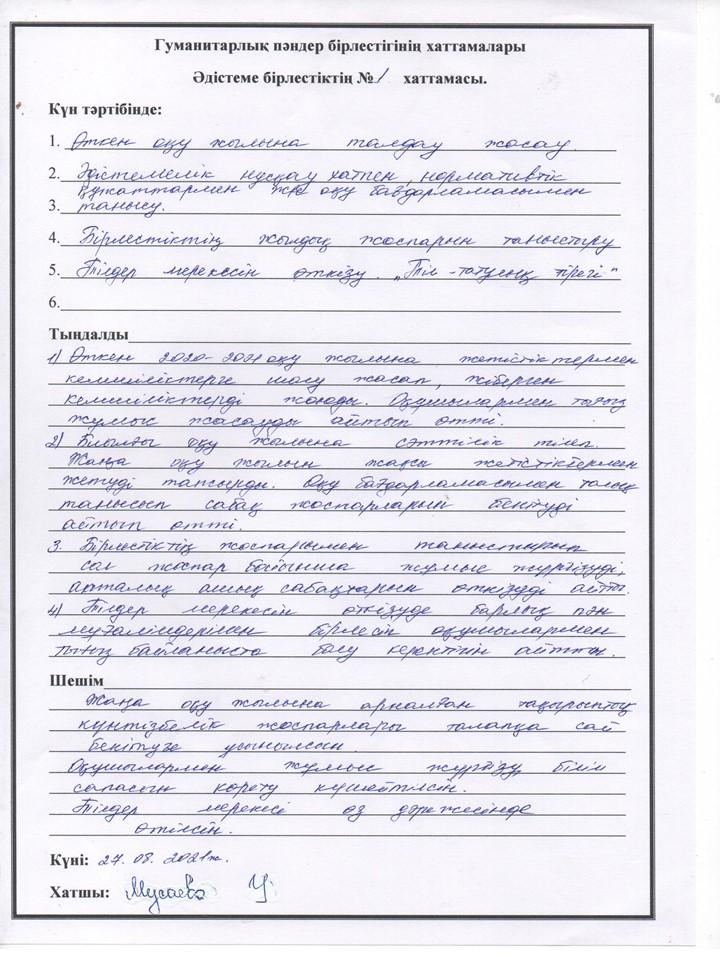 Гуманитарлық пәндер бірлестігінің хаттамалары
Әдістеме бірлестіктің № 1 хаттамасы.
Күн тәртібінде:
1. Өткен оқу жылына талдау жасау.
2. Әдістемелік нұсқау хатпен, нормативтік
құжаттармен және оқу бағдарламасымен
3. танысу.
4. Бірлестіктің жылдық жоспарын таныстыру
5. Тілдер мерекесін өткізу. „Тіл - татулық тірегі"
6.
Тыңдалды
1) Өткен 2020-2021 оқу жылына жетістіктермен
кемшіліктерге шолу жасап, жіберген
кемшіліктерді жоюды. Оқушылармен тығыз
жұмыс жасауды айтып өтті.
2) Биылғы оқу жылына сәттілік тілеп.
Жаңа оқу жылын жақсы жетістіктермен
жетуді тапсырды. Оқу бағдарламасымен толық
танысып сабақ жоспарларын бекітуді
айтып өтті.
3. Бірлестіктің жоспарымен таныстырып
сол жоспар бойынша жұмыс жүргізуді,
апталық ашық сабақтарын өткізуді айтты.
4) Тілдер мерекесін өткізуде барлық пән
мұғалімдерімен бірлесіп оқушылармен
тығыз байланыста болу керектігін айтты.
Шешім
Жаңа оқу жылына арналған тақырыптық
күнтізбелік жоспарлары талапқа сай
бекітуге ұсынылсын.
Оқушылармен жұмыс жүргізу, білім
сапасын көрсету күшейтілсін.
Тілдер мерекесі өз дәрежесінде
өтілсін.
Күні: 27. 08. 2021ж.
Хатшы: Мусаева У